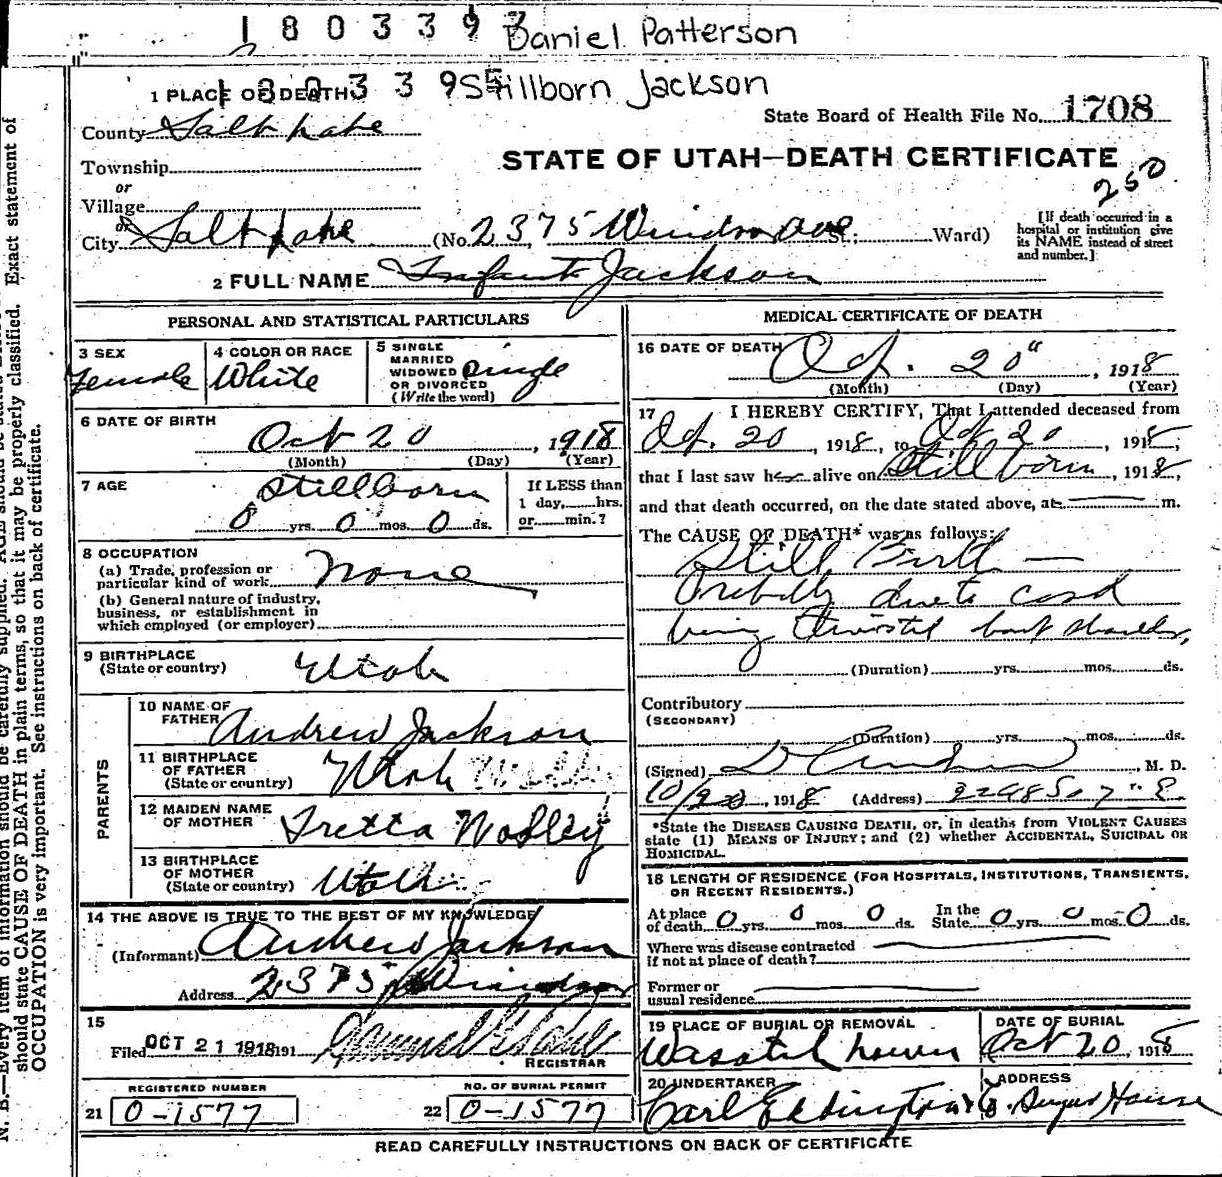 1803397
Daniel Patterson
1803395
Stillborn Jackson
1 PLACE OF DEATH
County Salt Lake
State Board of Health File No. 1708
STATE OF UTAH—DEATH CERTIFICATE
Township
or
Village
or
250
City Salt Lake (No. 2375 Windsor Ave St.; Ward)
[If death occurred in a
hospital or institution give
its NAME instead of street
and number.]
2 FULL NAME Infant Jackson
PERSONAL AND STATISTICAL PARTICULARS
3 SEX
Female
4 COLOR OR RACE
White
5 SINGLE
MARRIED
WIDOWED
OR DIVORCED
(Write the word)
Single
6 DATE OF BIRTH
Oct 20, 1918
(Month) (Day) (Year)
7 AGE
Stillborn
0 yrs. 0 mos. 0 ds.
If LESS than
1 day, hrs.
or min.?
8 OCCUPATION
(a) Trade, profession or
particular kind of work None
(b) General nature of industry,
business, or establishment in
which employed (or employer)
9 BIRTHPLACE
(State or country) Utah
PARENTS
10 NAME OF
FATHER Andrew Jackson
11 BIRTHPLACE
OF FATHER
(State or country) Utah
12 MAIDEN NAME
OF MOTHER Tretta Modley
13 BIRTHPLACE
OF MOTHER
(State or country) Utah
14 THE ABOVE IS TRUE TO THE BEST OF MY KNOWLEDGE
(Informant) Andrew Jackson
Address 2375 Windsor
15
Filed OCT 21 1918 191
REGISTRAR
REGISTERED NUMBER
21 0-1577
NO. OF BURIAL PERMIT
22 0-1577
MEDICAL CERTIFICATE OF DEATH
16 DATE OF DEATH
Oct. 20", 1918
(Month) (Day) (Year)
17 I HEREBY CERTIFY, That I attended deceased from
Oct. 20, 1918, to Oct 20, 1918,
that I last saw her alive on Stillborn, 1918,
and that death occurred, on the date stated above, at m.
The CAUSE OF DEATH* was as follows:
Still Birth —
Probably due to cord
being twisted
(Duration) yrs. mos. ds.
Contributory
(SECONDARY)
(Duration) yrs. mos. ds.
(Signed) M. D.
10/20, 1918 (Address) 2298 So 7" E.
*State the DISEASE CAUSING DEATH, or, in deaths from VIOLENT CAUSES
state (1) MEANS OF INJURY; and (2) whether ACCIDENTAL, SUICIDAL OR
HOMICIDAL.
18 LENGTH OF RESIDENCE (FOR HOSPITALS, INSTITUTIONS, TRANSIENTS,
OR RECENT RESIDENTS.)
At place
of death 0 yrs. 0 mos. 0 ds. In the
State 0 yrs. 0 mos. 0 ds.
Where was disease contracted
if not at place of death?
Former or
usual residence
19 PLACE OF BURIAL OR REMOVAL
Wasatch Lawn
DATE OF BURIAL
Oct 20, 1918
20 UNDERTAKER
Carl Eddington
ADDRESS
Sugar House
READ CAREFULLY INSTRUCTIONS ON BACK OF CERTIFICATE
N. B.—Every item of information should be carefully supplied. AGE should be stated
should state CAUSE OF DEATH in plain terms, so that it may be properly classified. Exact statement of
OCCUPATION is very important. See instructions on back of certificate.